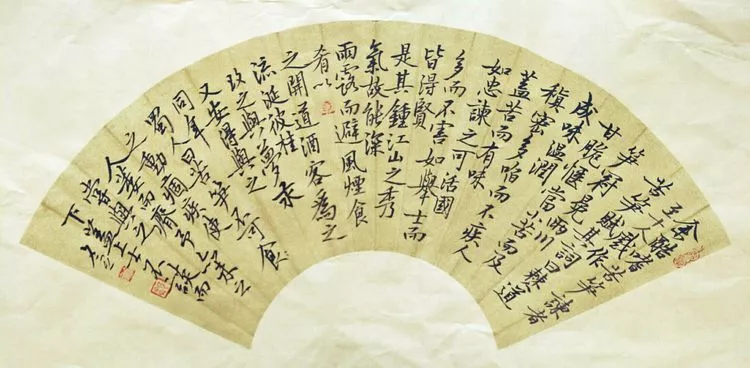 余酷嗜苦笋諫者
至十人戲作
苦笋賦其詞曰僰道
苦笋冠冕兩川
甘脆愜當小苦而反
成味溫潤
稹密多啗而不疾人
蓋苦而有味
如忠諫之可活國
多而不害如舉士而
皆得賢
是其鍾江山之秀
氣故能深
雨露而避風煙食
肴以
之開道酒客為之
流涎彼桂
玫之與夢永
又安得與之
同年蜀人曰苦笋不可食
之動痼疾使
人萎
下蓋上士